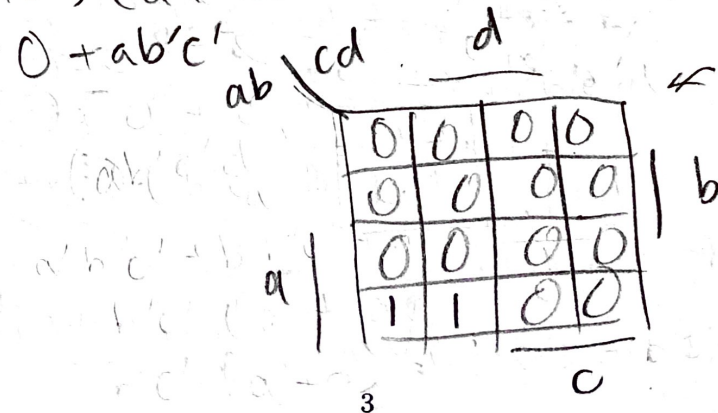 0 + ab'c'
ab cd
d
0 0 0 0
0 0 0 0
b
0 0 0 0
a
1 1 0 0
c
3